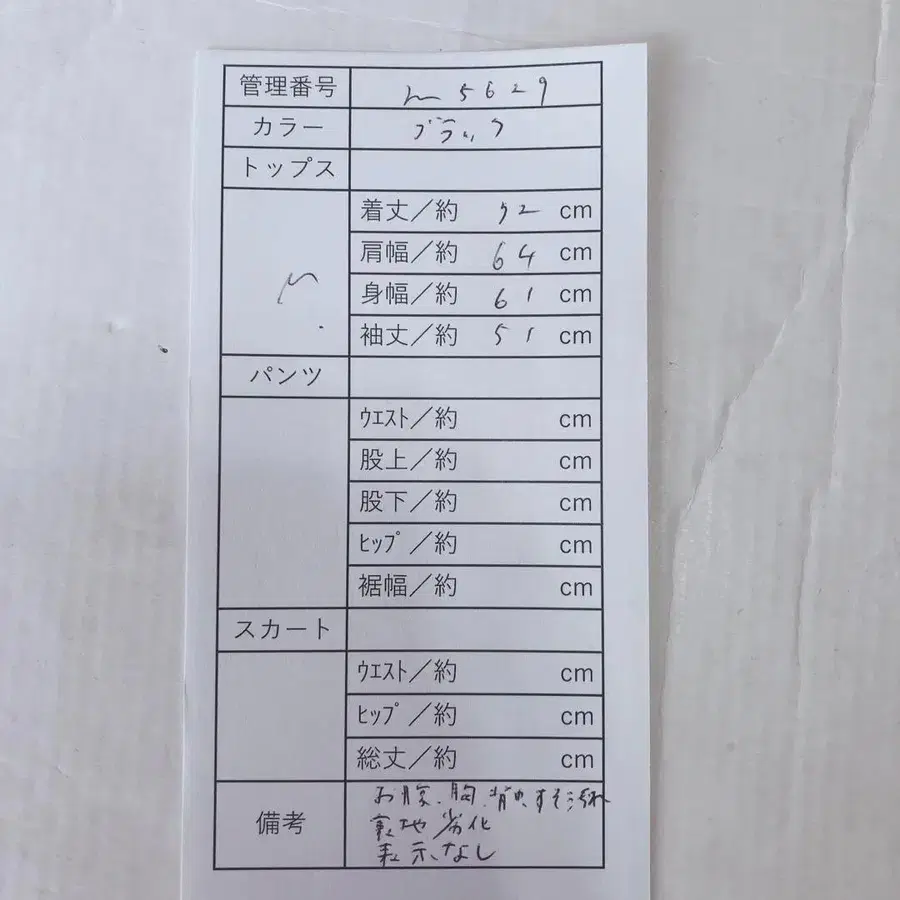 管理番号 m5629
カラー ブラック
トップス
着丈／約 52 cm
肩幅／約 64 cm
M 身幅／約 61 cm
袖丈／約 51 cm
パンツ
ｳｴｽﾄ／約 cm
股上／約 cm
股下／約 cm
ﾋｯﾌﾟ／約 cm
裾幅／約 cm
スカート
ｳｴｽﾄ／約 cm
ﾋｯﾌﾟ／約 cm
総丈／約 cm
備考 お腹、胸、背中、すそ汚れ
裏地劣化
表示なし